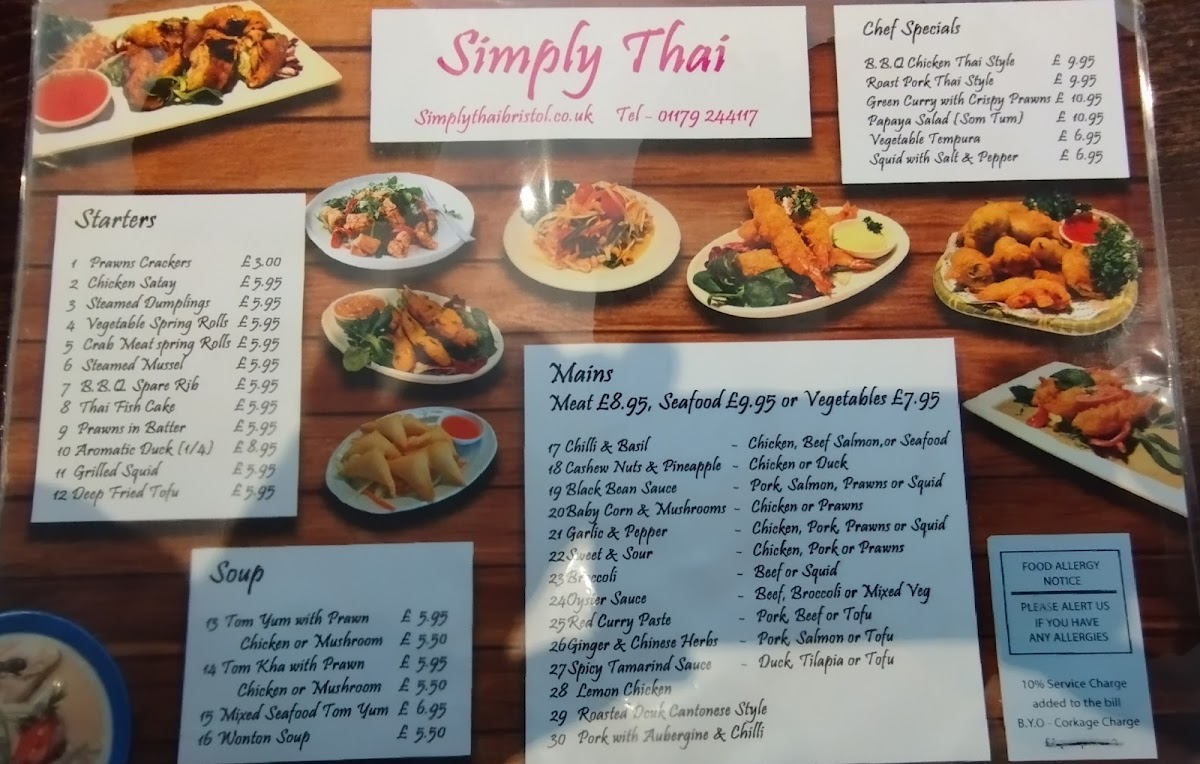 Simply Thai
Simplythaibristol.co.uk Tel - 01179 244117
Chef Specials
B.B.Q Chicken Thai Style £ 9.95
Roast Pork Thai Style £ 9.95
Green Curry with Crispy Prawns £ 10.95
Papaya Salad (Som Tum) £ 10.95
Vegetable Tempura £ 6.95
Squid with Salt & Pepper £ 6.95
Starters
1 Prawns Crackers £3.00
2 Chicken Satay £5.95
3 Steamed Dumplings £5.95
4 Vegetable Spring Rolls £5.95
5 Crab Meat spring Rolls £5.95
6 Steamed Mussel £5.95
7 B.B.Q Spare Rib £5.95
8 Thai Fish Cake £5.95
9 Prawns in Batter £5.95
10 Aromatic Duck (1/4) £8.95
11 Grilled Squid £5.95
12 Deep Fried Tofu £5.95
Soup
13 Tom Yum with Prawn £ 5.95
Chicken or Mushroom £ 5.50
14 Tom Kha with Prawn £ 5.95
Chicken or Mushroom £ 5.50
15 Mixed Seafood Tom Yum £ 6.95
16 Wonton Soup £ 5.50
Mains
Meat £8.95, Seafood £9.95 or Vegetables £7.95
17 Chilli & Basil - Chicken, Beef Salmon,or Seafood
18 Cashew Nuts & Pineapple - Chicken or Duck
19 Black Bean Sauce - Pork, Salmon, Prawns or Squid
20 Baby Corn & Mushrooms - Chicken or Prawns
21 Garlic & Pepper - Chicken, Pork, Prawns or Squid
22 Sweet & Sour - Chicken, Pork or Prawns
23 Broccoli - Beef or Squid
24 Oyster Sauce - Beef, Broccoli or Mixed Veg
25 Red Curry Paste - Pork, Beef or Tofu
26 Ginger & Chinese Herbs - Pork, Salmon or Tofu
27 Spicy Tamarind Sauce - Duck, Tilapia or Tofu
28 Lemon Chicken
29 Roasted Dcuk Cantonese Style
30 Pork with Aubergine & Chilli
FOOD ALLERGY
NOTICE
PLEASE ALERT US
IF YOU HAVE
ANY ALLERGIES
10% Service Charge
added to the bill
B.Y.O - Corkage Charge